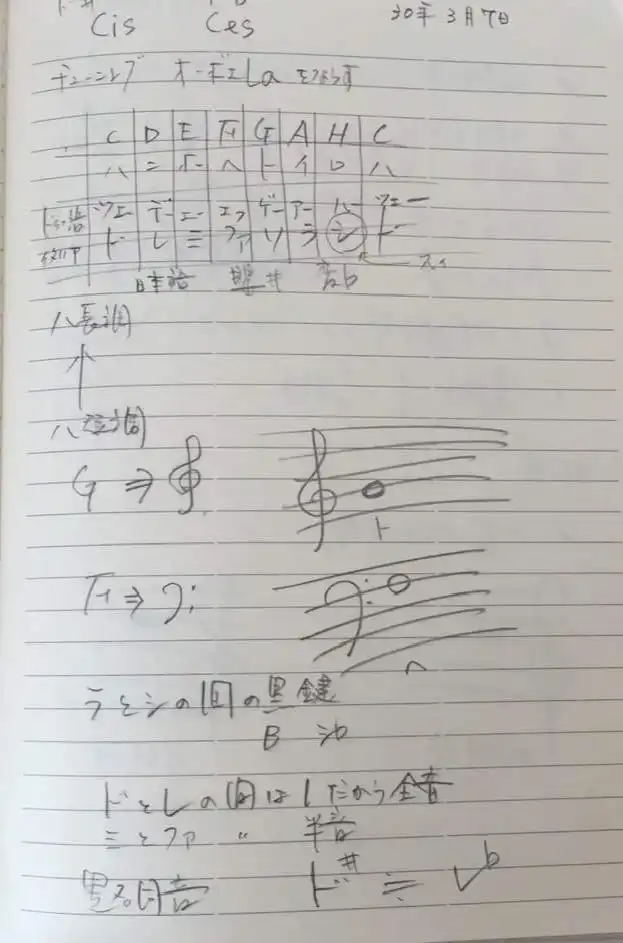 Cis Ces
30年3月7日
チューニング オーボエ La
C D E F G A H C
ハ ニ ホ ヘ ト イ ロ ハ
ツェー デー エー エフ ゲー アー ハー ツェー
ド レ ミ ファ ソ ラ シ ド
日本語 嬰# 変b
ハ長調
↑
ハ
G ⇒
ト
F ⇒
ヘ
ラとシの間の黒鍵
B シb
ドとレの間は1だから全音
ミとファ 〃 半音
異名同音 ド# ≒ レb